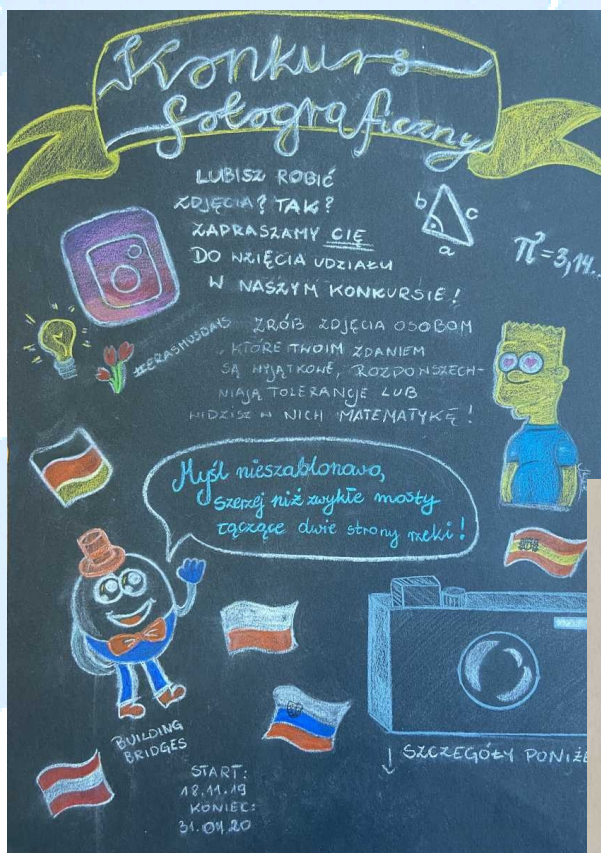 Konkurs
fotograficzny
LUBISZ ROBIĆ
ZDJĘCIA? TAK?
ZAPRASZAMY CIĘ
DO WZIĘCIA UDZIAŁU
W NASZYM KONKURSIE!
b c
a
π = 3,14...
#ERASMUSDAYS
ZRÓB ZDJĘCIA OSOBOM
, KTÓRE TWOIM ZDANIEM
SĄ WYJĄTKOWE, ROZPOWSZECH-
NIAJĄ TOLERANCJĘ LUB
WIDZISZ W NICH MATEMATYKĘ!
Myśl nieszablonowo,
szerzej niż zwykłe mosty
łączące dwie strony rzeki!
BUILDING
BRIDGES
↓ SZCZEGÓŁY PONIŻE
START:
18.11.19
KONIEC:
31.01.20